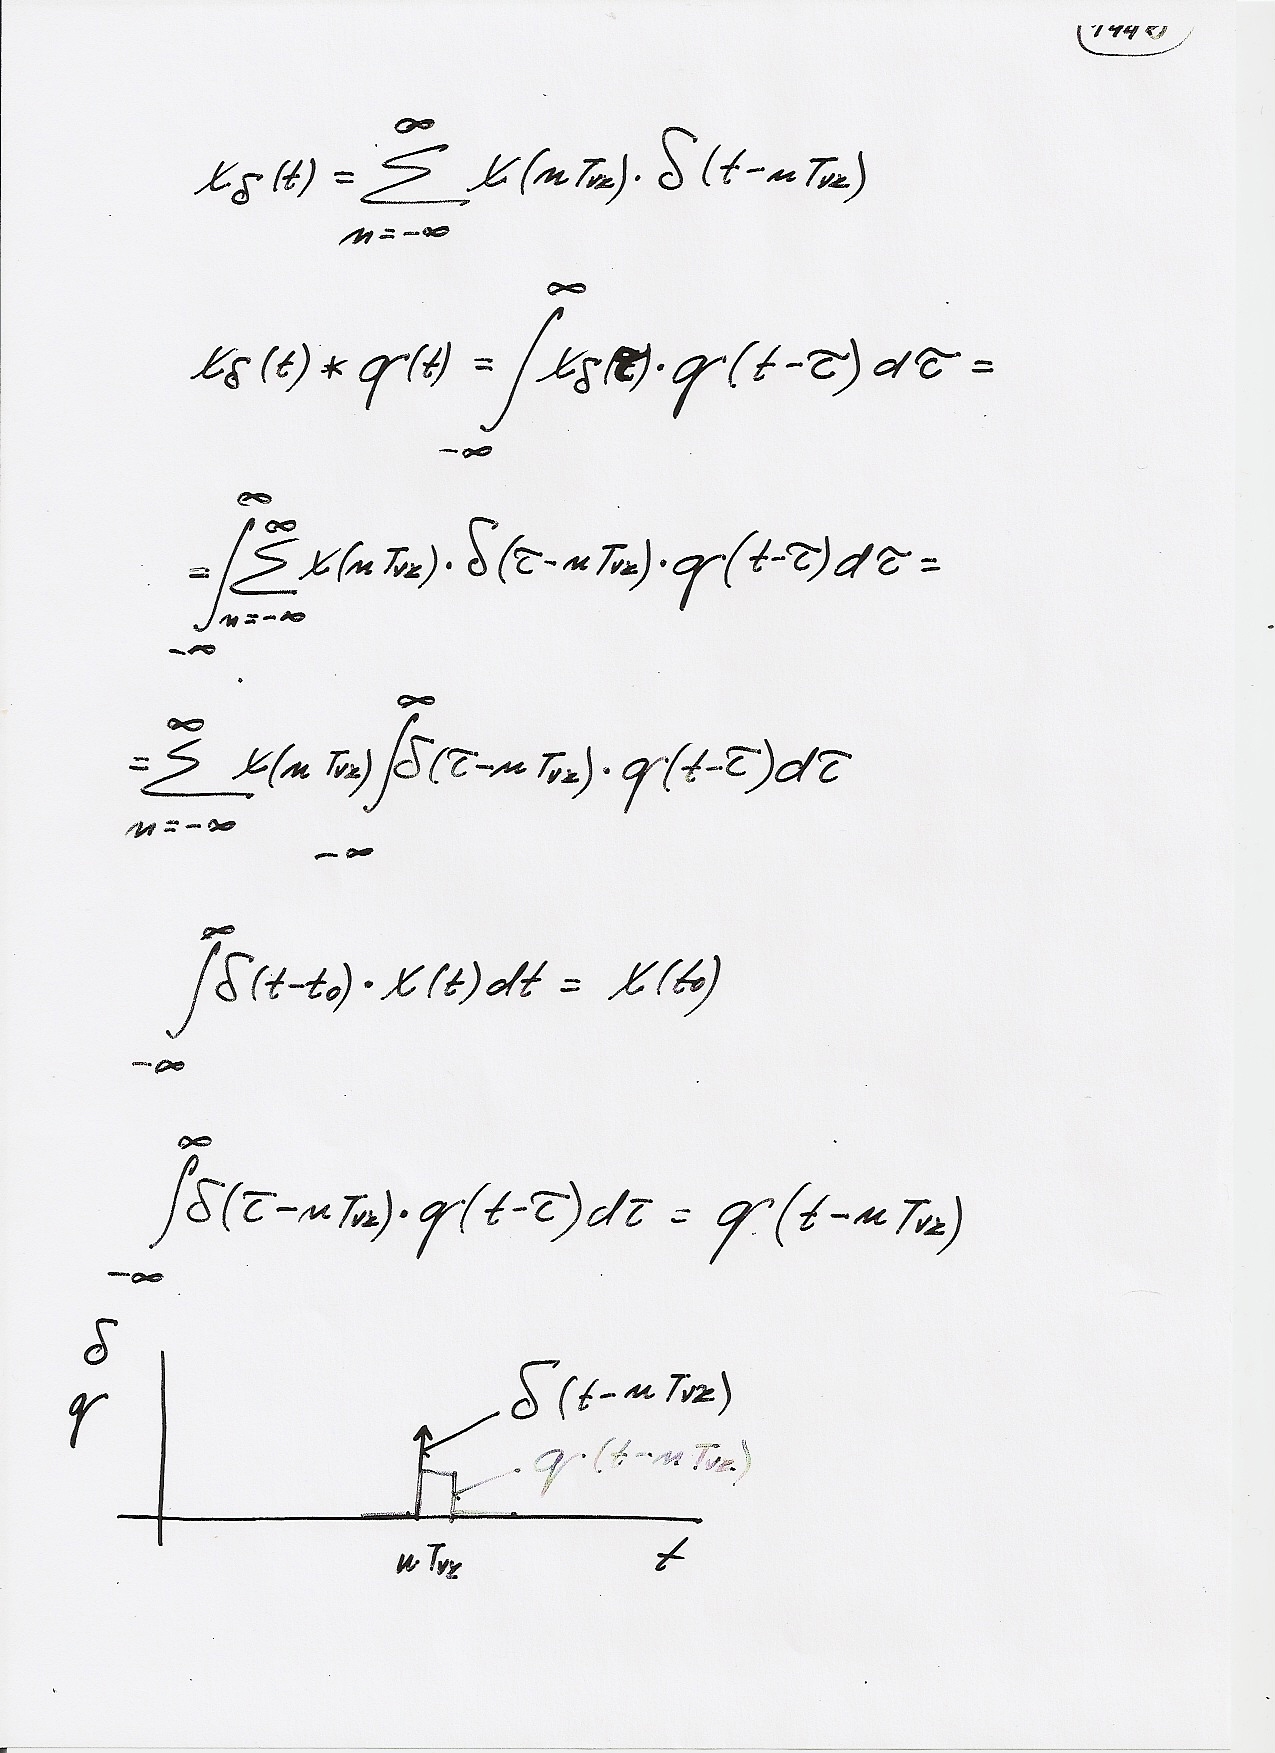 x_δ(t) = ∑_{n=-∞}^{∞} x(nT_vz)·δ(t-nT_vz)
x_δ(t) * q(t) = ∫_{-∞}^{∞} x_δ(τ)·q(t-τ)dτ =
= ∫_{-∞}^{∞} ∑_{n=-∞}^{∞} x(nT_vz)·δ(τ-nT_vz)·q(t-τ)dτ =
= ∑_{n=-∞}^{∞} x(nT_vz) ∫_{-∞}^{∞} δ(τ-nT_vz)·q(t-τ)dτ
∫_{-∞}^{∞} δ(t-t_0)·x(t)dt = x(t_0)
∫_{-∞}^{∞} δ(τ-nT_vz)·q(t-τ)dτ = q(t-nT_vz)
δ
q
δ(t-nT_vz)
q(t-nT_vz)
nT_vz
t